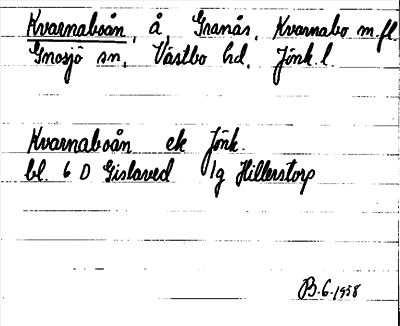 Kvarnaboån, å, Granås, Kvarnabo m.fl.
Gnosjö sn, Västbo hd, Jönk. l.
Kvarnaboån ek Jönk.
bl. 6 D Gislaved 1g Hillerstorp
B.G. 1958